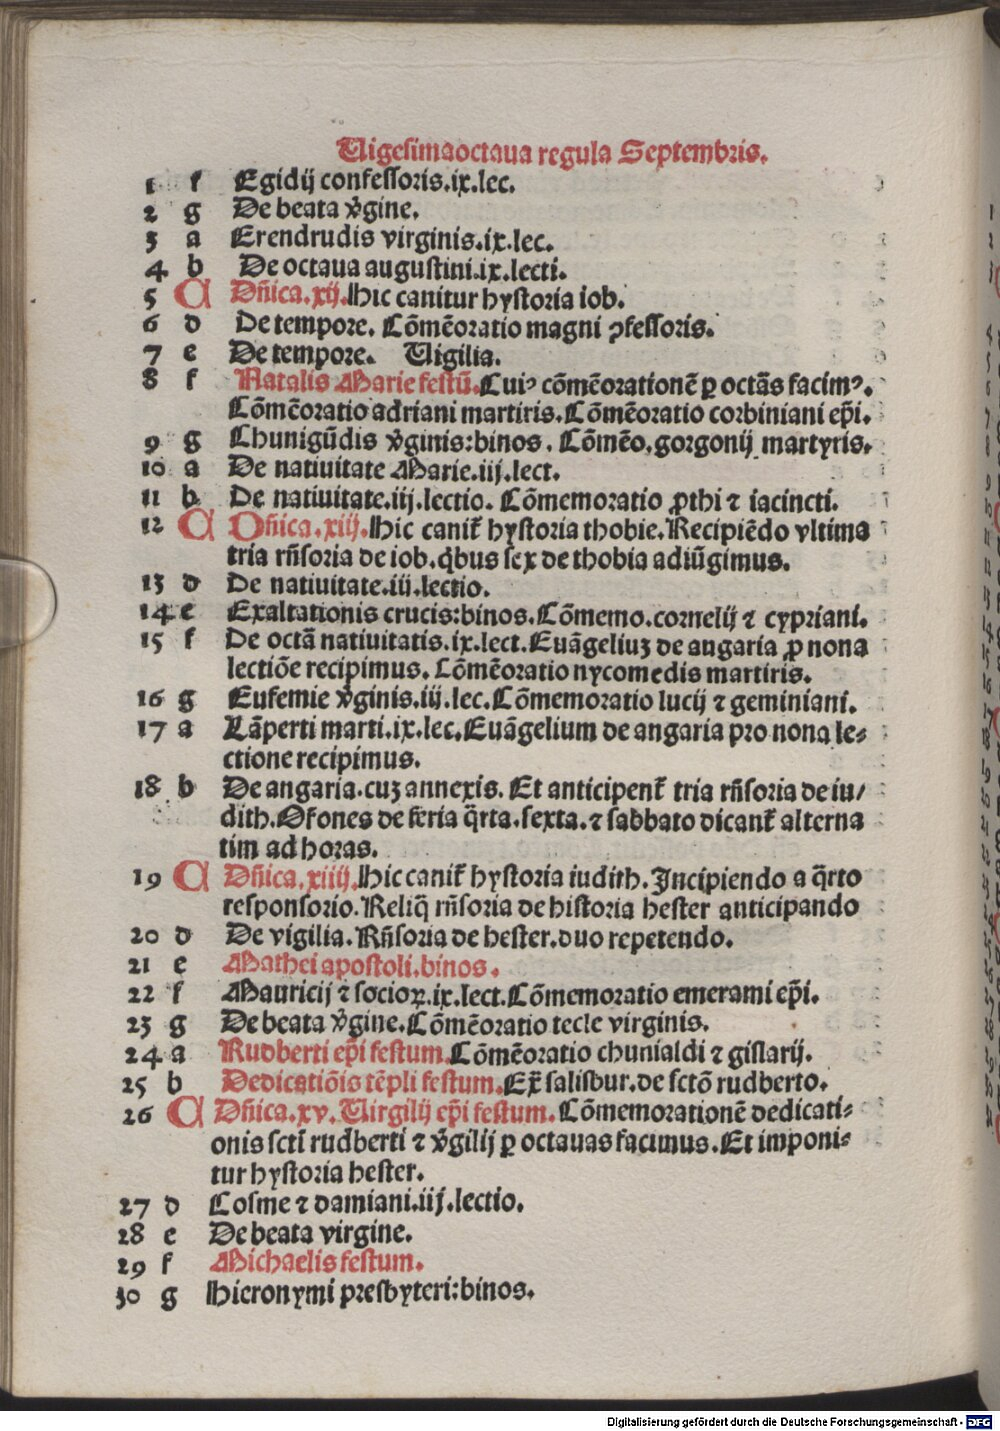 Uigesimaoctaua regula Septembris.
1 f Egidij confessoris.ix.lec.
2 g De beata v̾gine.
3 a Erendrudis virginis.ix.lec.
4 b De octaua augustini.ix.lecti.
5 C Dñica.xij.Hic canitur hystoria iob.
6 d De tempore. Cōmēoratio magni ꝯfessoris.
7 e De tempore. Uigilia.
8 f Natalis Marie festū.Cuiꝰ cōmēorationē ꝑ octās facimꝰ.
Cōmēoratio adriani martiris.Cōmēoratio corbiniani ep̄i.
9 g Chunigūdis v̾ginis:binos. Cōmēo.gorgonij martyris.
10 a De natiuitate Marie.iij.lect.
11 b De natiuitate.iij.lectio. Cōmemoratio ꝓthi ⁊ iacincti.
12 C Dñica.xiij.Hic canit̃ hystoria thobie.Recipiēdo vltima
tria rñsoria de iob.q̇bus sex de thobia adiūgimus.
13 d De natiuitate.iij.lectio.
14 e Exaltationis crucis:binos.Cōmemo.cornelij ⁊ cypriani.
15 f De octā natiuitatis.ix.lect.Euāgeliuʒ de angaria ꝓ nona
lectiōe recipimus. Cōmēoratio nycomedis martiris.
16 g Eufemie v̾ginis.iij.lec.Cōmemoratio lucij ⁊ geminiani.
17 a Lāperti marti.ix.lec.Euāgelium de angaria pro nona le⸗
ctione recipimus.
18 b De angaria.cuʒ annexis. Et anticipent̃ tria rñsoria de iu/
dith.Oꝛones de feria q̄rta.sexta.⁊ sabbato dicant̃ alterna
tim ad horas.
19 C Dñica.xiiij.Hic canit̃ hystoria iudith. Incipiendo a q̄rto
responsorio.Reliq̄ rñsoria de historia hester anticipando
20 d De vigilia.Rñsoria de hester.duo repetendo.
21 e Mathei apostoli.binos.
22 f Mauricij ⁊ socioꝝ.ix.lect.Cōmemoratio emerami ep̄i.
23 g De beata v̾gine.Cōmēoratio tecle virginis.
24 a Rudberti ep̄i festum.Cōmēoratio chunialdi ⁊ gislarij.
25 b Dedicatiōis tēpli festum.Ex̄ salisbur.de sctō rudberto.
26 C Dñica.xv.Uirgilij ep̄i festum.Cōmemorationē dedicati⸗
onis sctī rudberti ⁊ v̾gilij ꝑ octauas facimus.Et imponi⸗
tur hystoria hester.
27 d Cosme ⁊ damiani.iij.lectio.
28 e De beata virgine.
29 f Michaelis festum.
30 g Hieronymi presbyteri:binos.
Digitalisierung gefördert durch die Deutsche Forschungsgemeinschaft - DFG